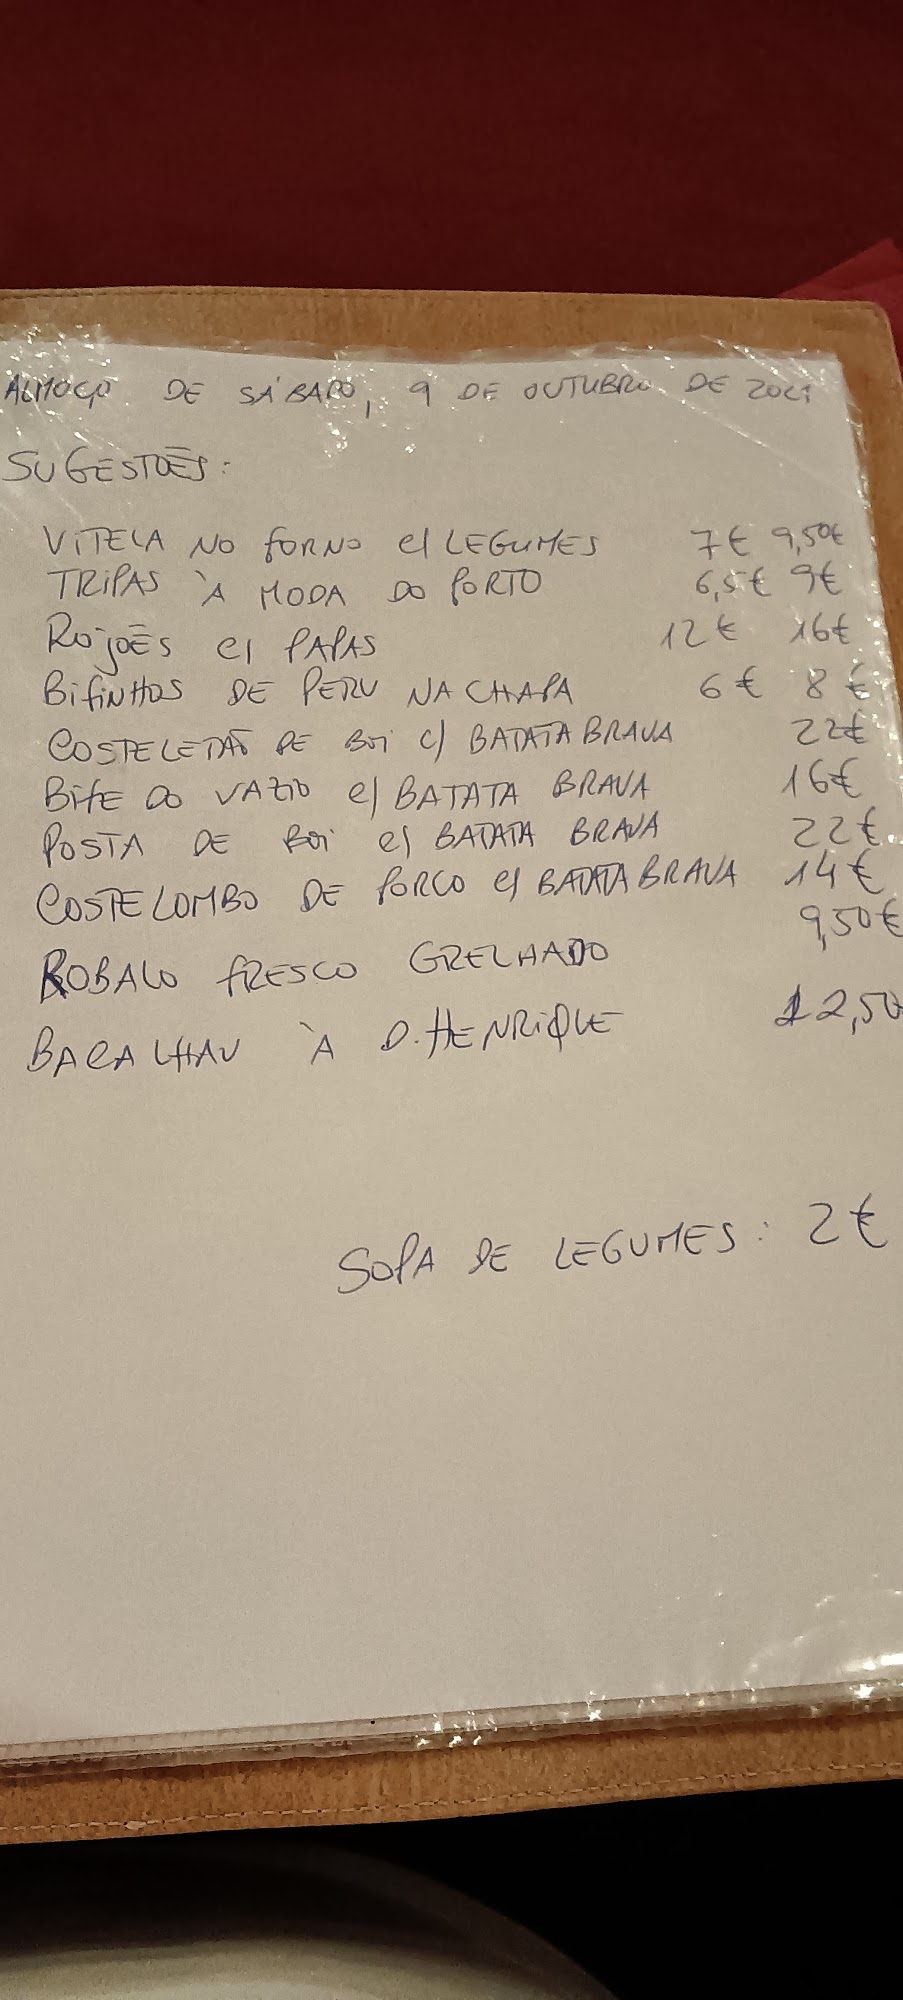 ALMOÇO DE SÁBADO, 9 DE OUTUBRO DE 2021
SUGESTÕES:
VITELA NO FORNO C/ LEGUMES 7€ 9,50€
TRIPAS À MODA DO PORTO 6,5€ 9€
ROJÕES C/ PAPAS 12€ 16€
BIFINHOS DE PERU NA CHAPA 6€ 8€
COSTELETÃO DE BOI C/ BATATA BRAVA 22€
BIFE DO VAZIO C/ BATATA BRAVA 16€
POSTA DE BOI C/ BATATA BRAVA 22€
COSTELOMBO DE PORCO C/ BATATA BRAVA 14€
ROBALO FRESCO GRELHADO 9,50€
BACALHAU À D. HENRIQUE 12,50
SOPA DE LEGUMES: 2€